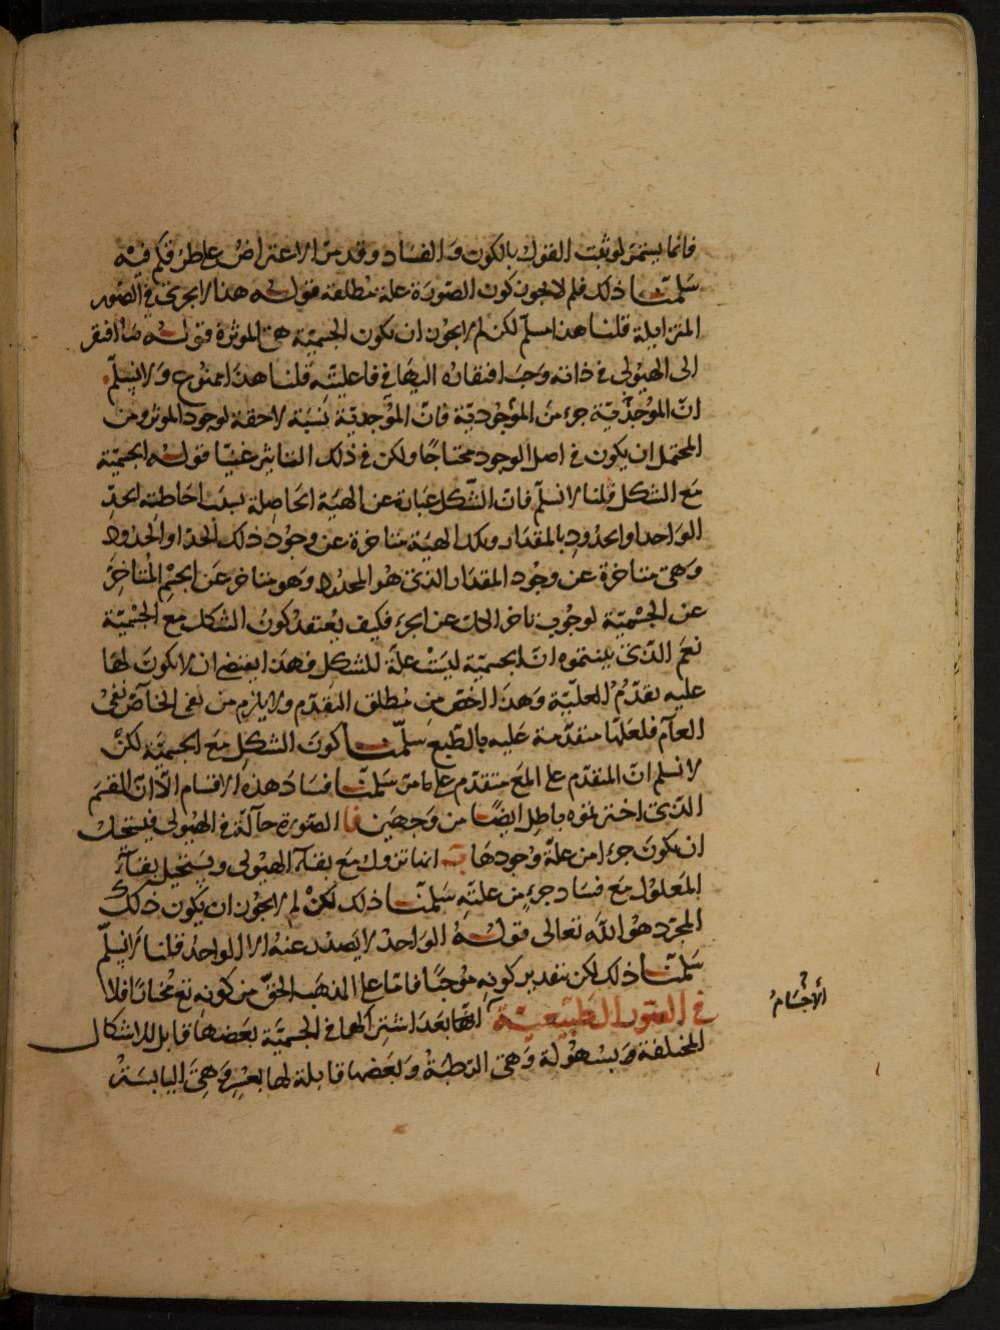 فانما يستمر لو ثبت القول بالكون والفساد وقد مر الاعتراض على طرقكم فيه
سلمنا ذلك فلم لا يجوز كون الصورة علة مطلقة قوله هذا لا يجري في الصور
المتزايلة قلنا هذا مسلم لكن لم لا يجوز ان تكون الجسمية هي الموثرة قوله ما افتقر
الى الهيولى في ذاته وجب افتقاره اليها في فاعليته قلنا هذا ممنوع ولا نسلم
ان الموجدية جزء من الموجودية فان الموجدية نسبة لاحقة لوجود الموثر ومن
المحتمل ان يكون في اصل الوجود محتاجا ولكن في ذلك التاثير غنيا قوله الجسمية
مع الشكل قلنا لا نسلم فان الشكل عبارة عن الهية الحاصلة بسبب احاطة الحد
الواحد او الحدود بالمقدار وتلك الهية متاخرة عن وجود ذلك الحد او الحدود
وهي متاخرة عن وجود المقدار الذي هو المحدود وهو متاخر عن الجسم المتاخر
عن الجسمية لوجوب تاخر الكل عن الجزء فكيف يعتقد كون الشكل مع الجسمية
نعم الذي بينتموه ان الجسمية ليست علة للشكل فهذا يقتضي ان لا يكون لها
عليه تقدم العلية وهذا اخص من مطلق التقدم ولا يلزم من نفي الخاص نفي
العام فلعلها متقدمة عليه بالطبع سلمنا كون الشكل مع الجسمية لكن
لا نسلم ان المتقدم على المع متقدم على ما مر سلمنا فساد هذه الاقسام الا ان القسم
الذي اخترتموه باطل ايضا من وجهين فا الصورة حالة في الهيولى فيستحيل
ان يكون جزءا من علة وجودها ب انها تزول مع بقاء الهيولى ويستحيل بقاء
المعلول مع فساد جزء من علته سلمنا ذلك لكن لم لا يجوز ان يكون ذلك
المجرد هو الله تعالى قوله الواحد لا يصدر عنه الا الواحد قلنا لا نسلم
سلمنا ذلك لكن بتقدير كونه موجبا فاما على المذهب الحق من كونه تع مختارا فلا
في القوى الطبيعية الاجسام انها بعد اشتراكها في الجسمية بعضها قابل للاشكال
المختلفة وبسهولة وهي الرطبة وبعضها قابلة لها بعسر وهي اليابسة